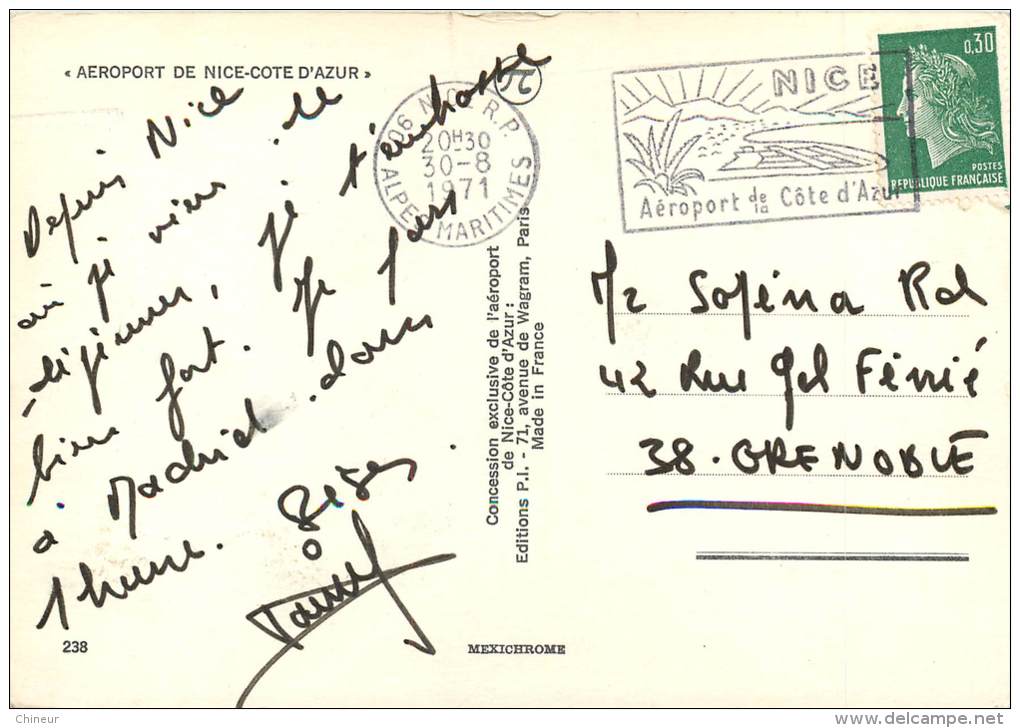 « AEROPORT DE NICE-COTE D'AZUR »
Depuis Nice
où je viens de
déjeuner, je t'embrasse
bien fort. Je pars
à Madrid dans
1 heure. Bises.
06 NICE R.P.
20H30
30-8
1971
ALPES MARITIMES
NICE
Aéroport de la Côte d'Azur
0,30
POSTES
REPUBLIQUE FRANÇAISE
Concession exclusive de l'aéroport
de Nice-Côte d'Azur :
Editions P.I. - 71, avenue de Wagram, Paris
Made in France
42 Rue Gal Ferrié
38. GRENOBLE
238
MEXICHROME
Chineur
delcampe.net